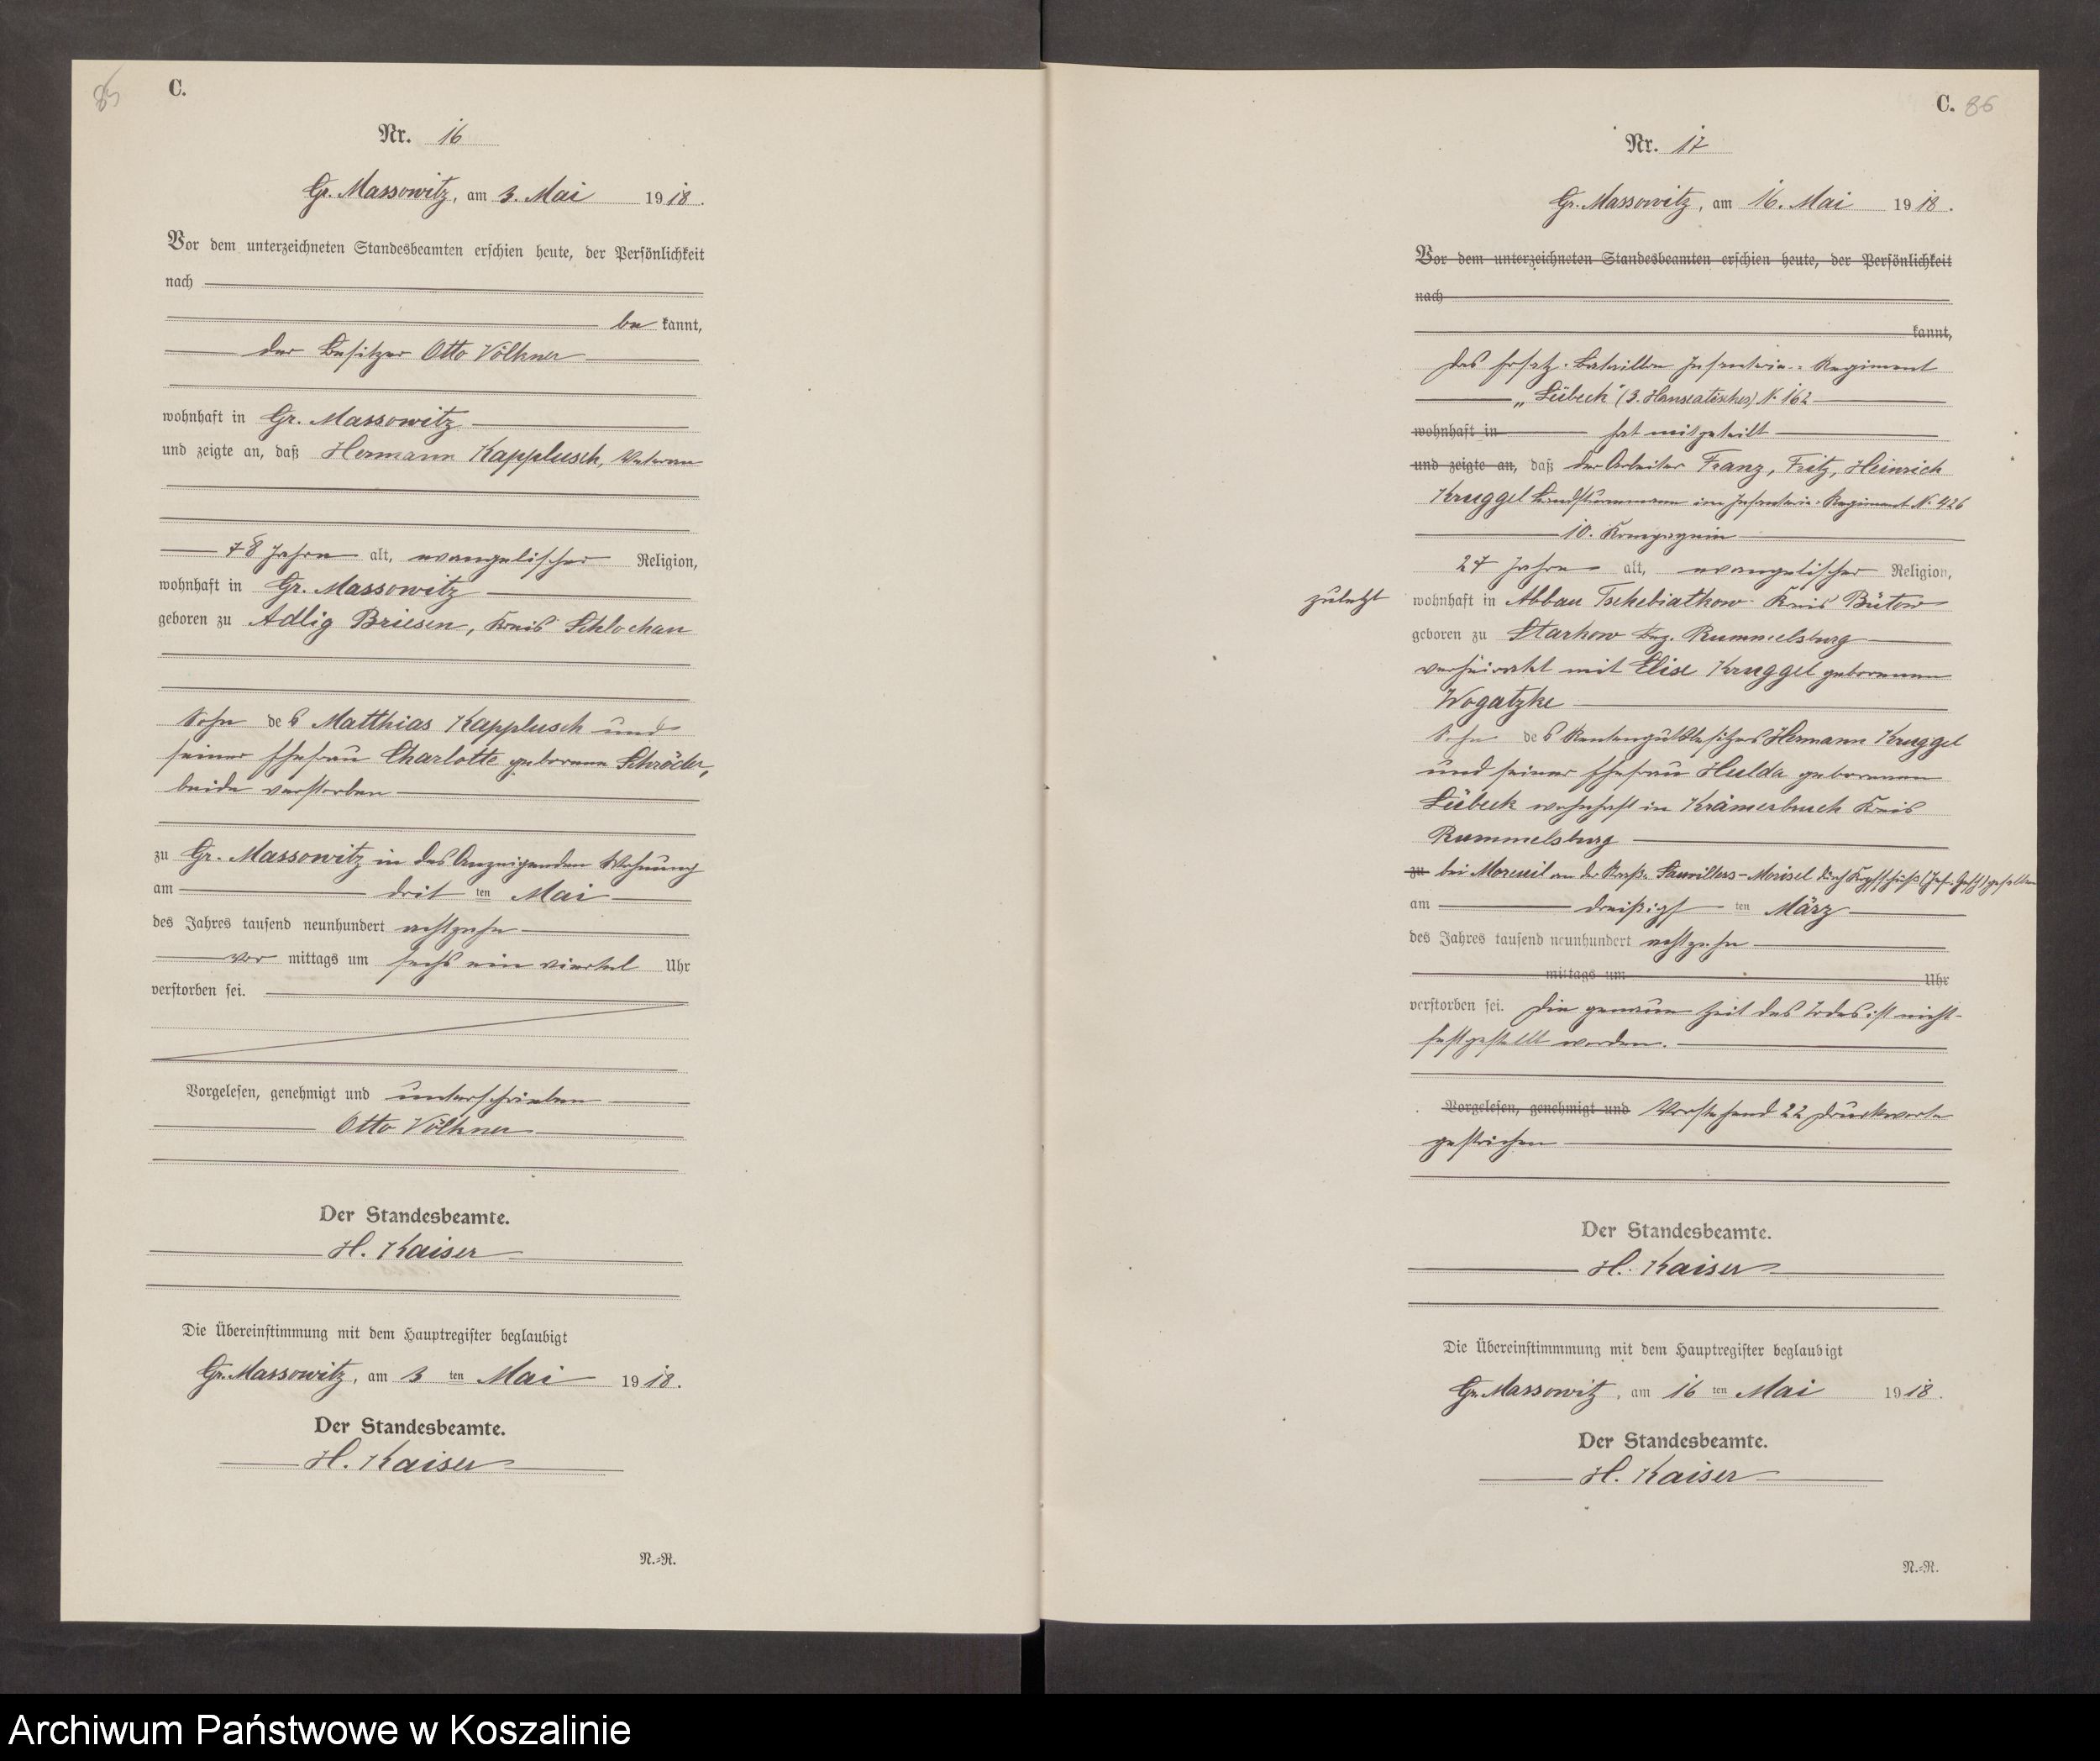 85
C.
Nr. 16
Gr. Massowitz, am 3. Mai 1918.
Vor dem unterzeichneten Standesbeamten erschien heute, der Persönlichkeit
nach
be kannt,
der Besitzer Otto Völkner
wohnhaft in Gr. Massowitz
und zeigte an, daß Hermann Kapplusch, Veteran
78 Jahre alt, evangelischer Religion,
wohnhaft in Gr. Massowitz
geboren zu Adlig Briesen, Kreis Schlochau
Sohn des Matthias Kapplusch und
seiner Ehefrau Charlotte geborene Schröder,
beide verstorben
zu Gr. Massowitz in des Anzeigenden Wohnung
am dritten Mai
des Jahres tausend neunhundert achtzehn
vor mittags um sechs ein viertel Uhr
verstorben sei.
Vorgelesen, genehmigt und unterschrieben
Otto Völkner
Der Standesbeamte.
H. Kaiser
Die Übereinstimmung mit dem Hauptregister beglaubigt
Gr. Massowitz, am 3 ten Mai 1918.
Der Standesbeamte.
H. Kaiser
N.=R.
C. 86
Nr. 17
Gr. Massowitz, am 16. Mai 1918.
Vor dem unterzeichneten Standesbeamten erschien heute, der Persönlichkeit
nach
kannt,
Das Ersatz-Bataillon Infanterie-Regiment
„Lübeck" (3. Hanseatisches) N. 162
wohnhaft in hat mitgeteilt
und zeigte an, daß der Arbeiter Franz, Fritz, Heinrich
Kruggel Landsturmmann im Infanterie-Regiment N. 426
10. Kompagnie
27 Jahre alt, evangelischer Religion,
zuletzt wohnhaft in Abbau Tschebiatkow Kreis Bütow
geboren zu Starkow Rummelsburg
verheiratet mit Elise Kruggel geborenen
Wogatzke
Sohn des Rentengutsbesitzers Hermann Kruggel
und seiner Ehefrau Hulda geborenen
Lübeck wohnhaft in Krämerbruch Kreis
Rummelsburg
zu bei Moreuil an der Straße Sauvillers-Morisel durch Kopfschuß gefallen
am dreißigsten März
des Jahres tausend neunhundert achtzehn
mittags um Uhr
verstorben sei. Die genaue Zeit des Todes ist nicht
festgestellt worden.
Vorgelesen, genehmigt und Vorstehend 22 Druckworte
gestrichen
Der Standesbeamte.
H. Kaiser
Die Übereinstimmmung mit dem Hauptregister beglaubigt
Gr. Massowitz, am 16 ten Mai 1918.
Der Standesbeamte.
H. Kaiser
N.=R.
Archiwum Państwowe w Koszalinie